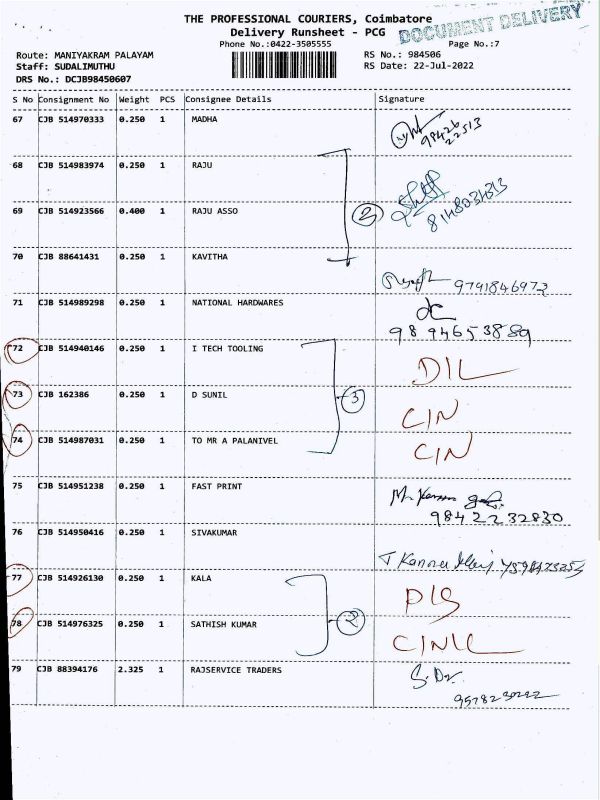 THE PROFESSIONAL COURIERS, Coimbatore
Delivery Runsheet - PCG
DOCUMENT DELIVERY
Phone No.:0422-3505555
Page No.:7
Route: MANIYAKRAM PALAYAM
RS No.: 984506
Staff: SUDALIMUTHU
RS Date: 22-Jul-2022
DRS No.: DCJB98450607
S No Consignment No Weight PCS Consignee Details Signature
67 CJB 514970333 0.250 1 MADHA
98426
22513
68 CJB 514983974 0.250 1 RAJU
69 CJB 514923566 0.400 1 RAJU ASSO
2
70 CJB 88641431 0.250 1 KAVITHA
9791846972
71 CJB 514989298 0.250 1 NATIONAL HARDWARES
9894653889
72 CJB 514940146 0.250 1 I TECH TOOLING
DIL
73 CJB 162386 0.250 1 D SUNIL
3
CIN
74 CJB 514987031 0.250 1 TO MR A PALANIVEL
CIN
75 CJB 514951238 0.250 1 FAST PRINT
9842232830
76 CJB 514950416 0.250 1 SIVAKUMAR
77 CJB 514926130 0.250 1 KALA
78 CJB 514976325 0.250 1 SATHISH KUMAR
2
79 CJB 88394176 2.325 1 RAJSERVICE TRADERS